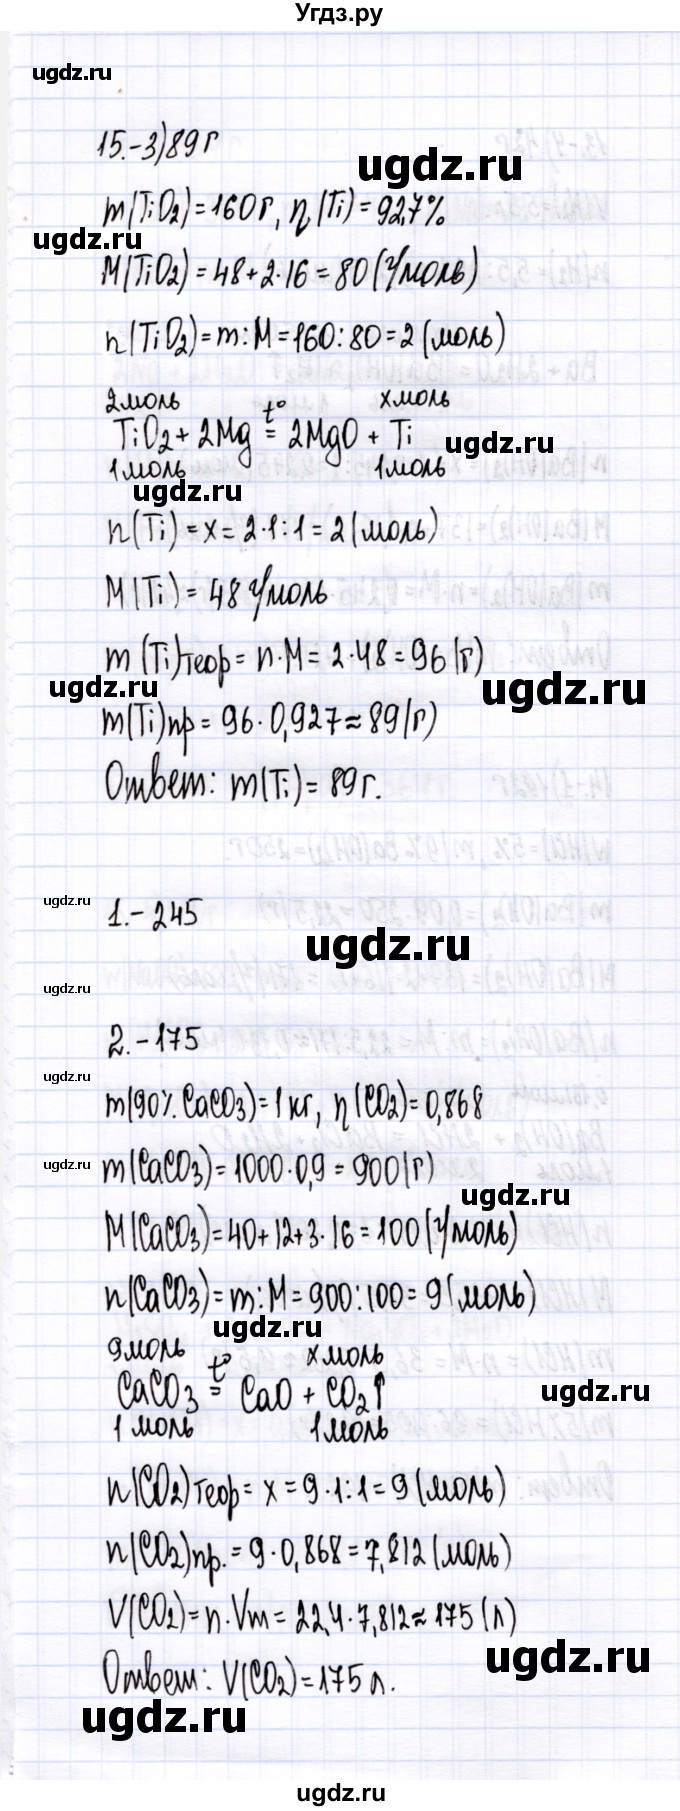 Угдз.ру
ugdz.ru
15.-3) 89 г
ugdz.ru
m(TiO2) = 160 г, η(Ti) = 92,7%
ugdz.ru
M(TiO2) = 48 + 2·16 = 80 (г/моль)
n(TiO2) = m : M = 160 : 80 = 2 (моль)
2 моль x моль
TiO2 + 2Mg t°= 2MgO + Ti
ugdz.ru
1 моль 1 моль
ugdz.ru
n(Ti) = x = 2·1 : 1 = 2 (моль)
M(Ti) = 48 г/моль
m(Ti)теор = n·M = 2·48 = 96 (г)
ugdz.ru
ugdz.ru
m(Ti)пр = 96·0,927 ≈ 89 (г)
Ответ: m(Ti) = 89 г.
ugdz.ru
1. - 245
ugdz.ru
ugdz.ru
2. - 175
ugdz.ru
m(90% CaCO3) = 1 кг, η(CO2) = 0,868
ugdz.ru
m(CaCO3) = 1000·0,9 = 900 (г)
ugdz.ru
M(CaCO3) = 40 + 12 + 3·16 = 100 (г/моль)
n(CaCO3) = m : M = 900 : 100 = 9 (моль)
ugdz.ru
9 моль x моль
CaCO3 t°= CaO + CO2↑
ugdz.ru
1 моль 1 моль
n(CO2)теор = x = 9·1 : 1 = 9 (моль)
n(CO2)пр. = 9·0,868 = 7,812 (моль)
V(CO2) = n·Vm = 22,4·7,812 ≈ 175 (л)
ugdz.ru
Ответ: V(CO2) = 175 л.
ugdz.ru
ugdz.ru